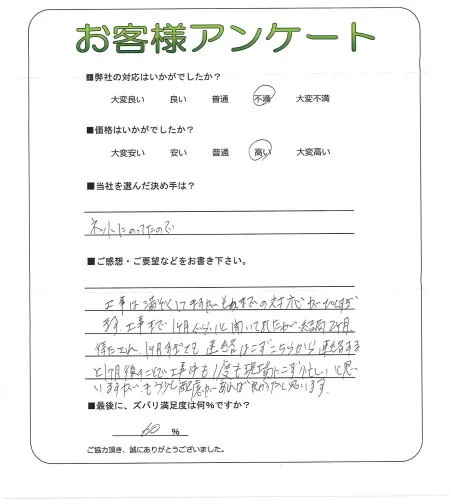 お客様アンケート
■弊社の対応はいかがでしたか？
大変良い 良い 普通 不満 大変不満
■価格はいかがでしたか？
大変安い 安い 普通 高い 大変高い
■当社を選んだ決め手は？
ネットにのってたので
■ご感想・ご要望などをお書き下さい。
工事は それまでの対応が
工事まで1ヶ月くらいと聞いてれたが 結局2ヶ月
待たされ、1ヶ月すぎても連絡はこずこちらから連絡する
と1ヶ月後 工事中も1度も現場にこず忙しいと思
いますが、もう少し配慮があれば良かったと思います。
■最後に、ズバリ満足度は何%ですか？
60 %
ご協力頂き、誠にありがとうございました。